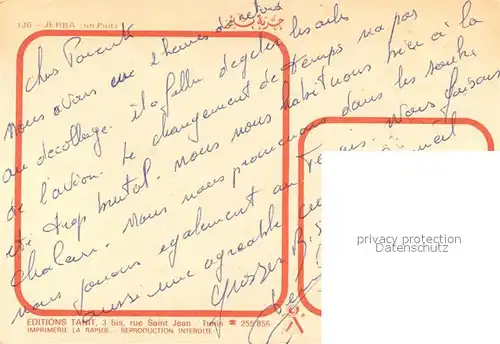 136 - JERBA : un Puits
جربة بئر
Chers Parents
Nous avons eu 2 heures de retard
au décollage. il a fallu dégeler les ailes
de l'avion. Le changement de temps n'a pas
été trop brutal. Nous nous habituons bien à la
chaleur. Nous nous promenons dans les souks
nous jouons également au Tennis. Nous faisons
aussi une agréable
Grosses Bises
privacy protection
Datenschutz
EDITIONS TANIT, 3 bis, rue Saint Jean - Tunis ☎ 255.856
IMPRIMERIE LA RAPIDE - REPRODUCTION INTERDITE